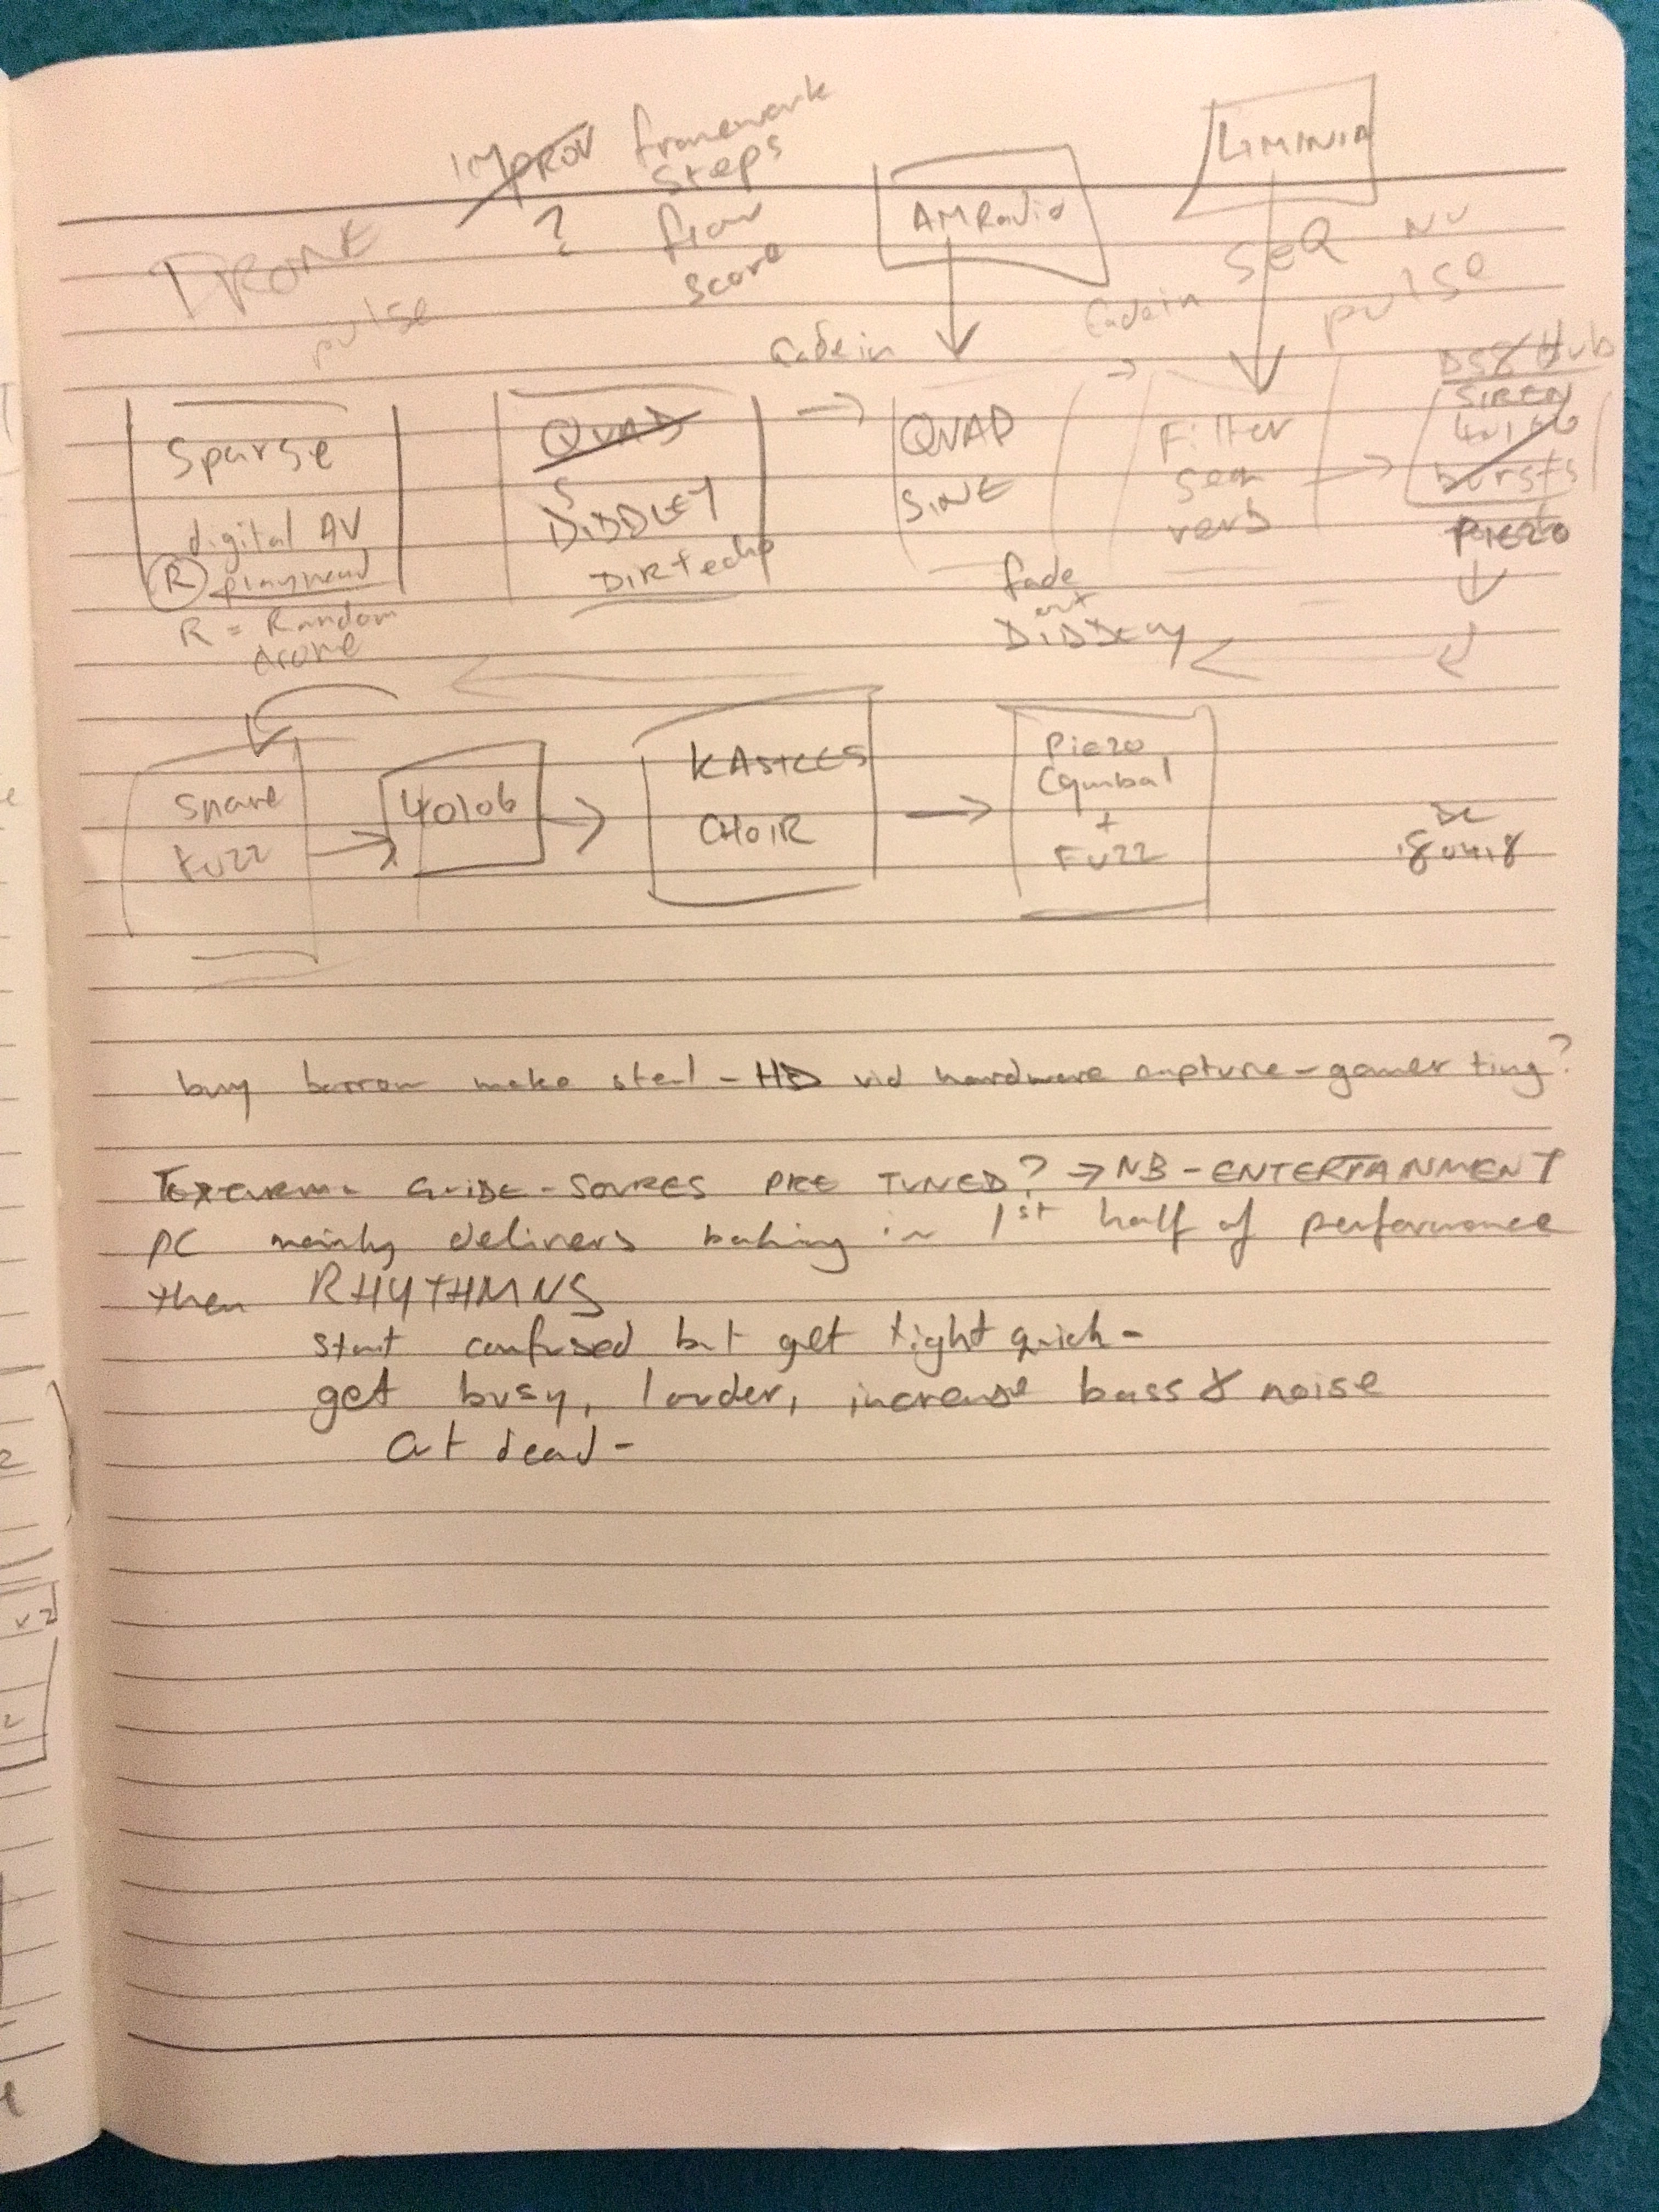 IMPROV framework
steps
?
flow
score
AM Radio
LIMINIA
DRONE
pulse
SEQ NU
pulse
fade in
fade in
Sparse
digital AV
R playhead
R = Random
drone
QUAD
S
DIDDLEY
DIRTecho
QUAD
SINE
Filter
verb
DS8 Hub
SIREN
40106
bursts
PIEZO
fade
out
DIDDLEY
Snare
fuzz
40106
CHOIR
Piezo
Cymbal
+
FUZZ
buy borrow make steal - HD vid hardware capture - gamer ting?
GUIDE - SOURCES PRE TUNED? → NB - ENTERTAINMENT
PC mainly delivers in 1st half of performance
then RHYTHMNS
start confused but get tight quick -
get busy, louder, increase bass & noise
cut dead -